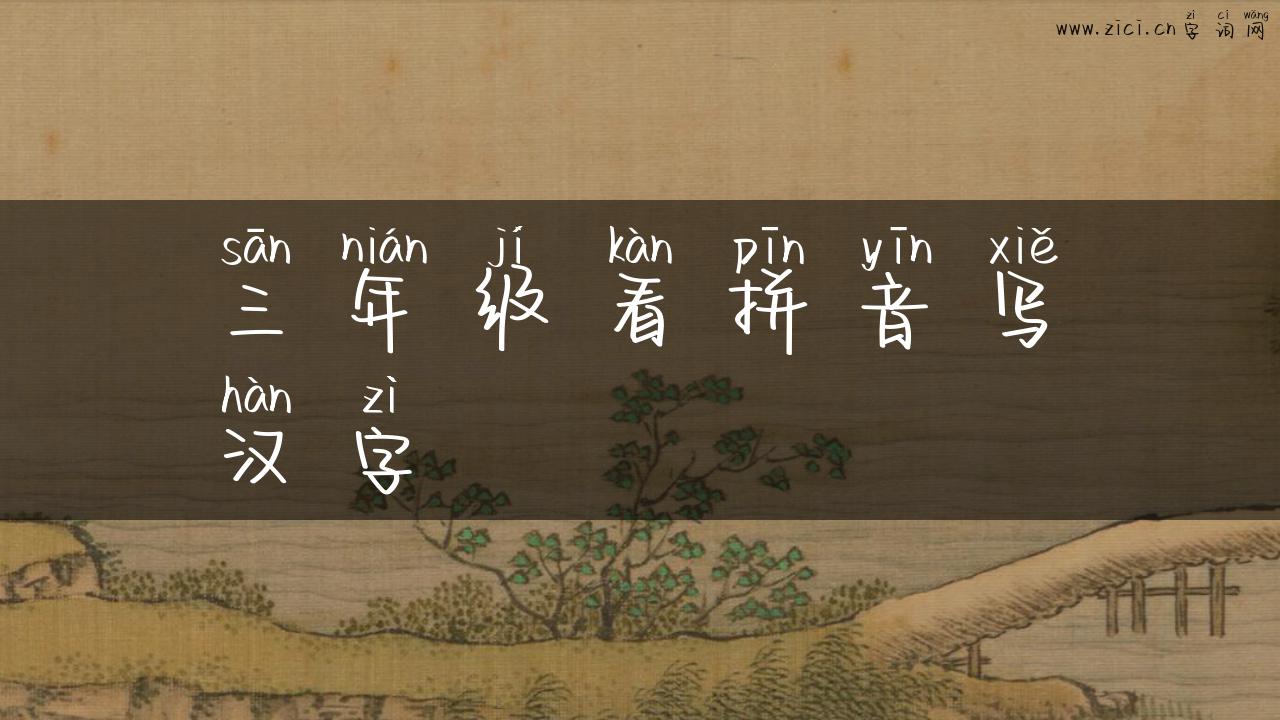 zì cí wǎng
www.zici.cn 字 词 网
sān nián jí kàn pīn yīn xiě
三 年 级 看 拼 音 写
hàn zì
汉 字